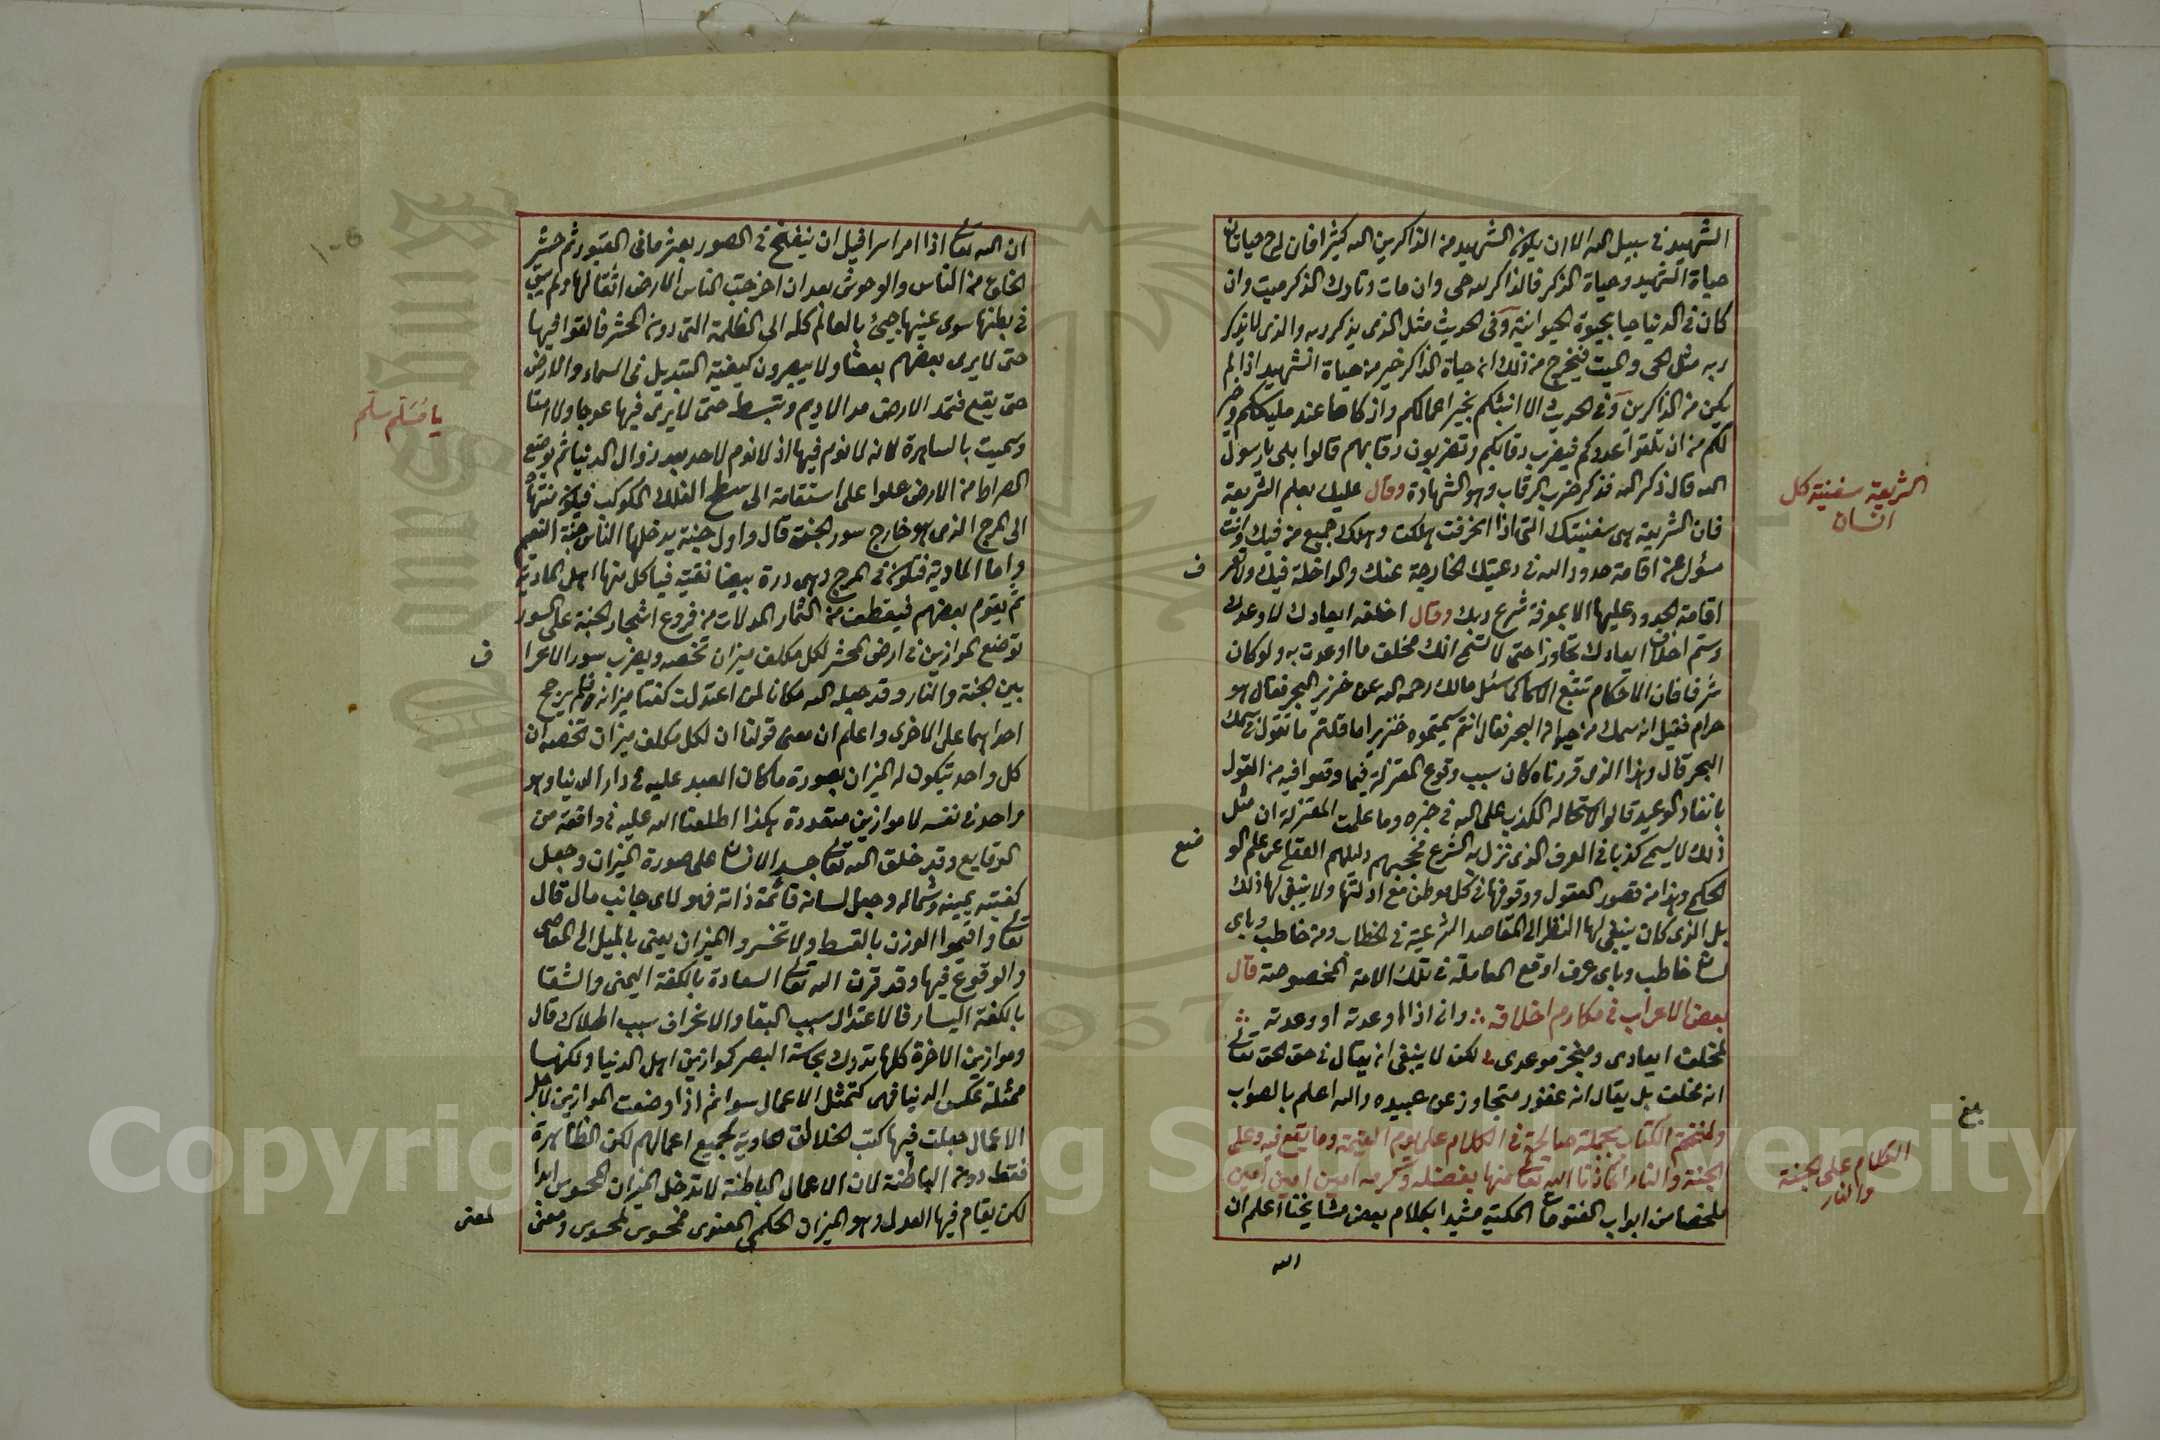 الشهيد في سبيل الله الا ان يكون الشهيد من الذاكرين الله كثيرا فان له ح حياتان
حياة الشهيد وحياة الذكر فالذاكر لله حي وان مات وتارك الذكر ميت وان
كان في الدنيا حيا بحيوة الحيوانية وفي الحديث مثل الذي يذكر ربه والذي لا يذكر
ربه مثل الحي والميت فيخرج من ذلك ان حياة الذاكر خير من حياة الشهيد اذا لم
يكن من الذاكرين وفي الحديث الا انبئكم بخير اعمالكم وازكاها عند مليككم وخير
لكم من ان تلقوا عدوكم فيضرب رقابكم وتضربون رقابهم قالوا بلى يا رسول
الله قال ذكر الله فذكر ضرب الرقاب وهو الشهادة وقال عليك بعلم الشريعة
فان الشريعة هي سفينتك التي اذا انخرقت هلكت وهلك جميع من فيك وانت
مسؤل عن اقامة حدود الله في رعيتك الخارجة عنك والداخلة فيك ولا تعر
اقامة الحدود عليها الا بمعرفة شرع ربك وقال اخلف ايعادك لا وعدك
وسم اخلاف ايعادك تجاوزا حتى لا تسمى انك مخلف ما اوعدت به ولو كان
شرفا فان الاحكام تتبع الاسما كما سئل مالك رحمه الله عن خنزير البحر فقال هو
حرام فقيل انه سمك من حيوان البحر فقال انتم سميتموه خنزيرا ما قلتم ما تقول في سمك
البحر قال وهذا الذي قررناه كان سبب وقوع المعتزلة فيما وقعوا فيه من القول
بانفاد الوعيد قالوا لاستحالة الكذب على الله في خبره وما علمت المعتزلة ان مثل
ذلك لا يسمى كذبا في العرف الذي نزل به الشرع فحجبهم دليلهم العقلي عن علم الو
الحكم وهذا من قصور العقول ووقوفها في كل موطن مع ادلتها ولا ينبغي لها ذلك
بل الذي كان ينبغي لها النظر الى المقاصد الشرعية في الخطاب ومن خاطب وباى
لسان خاطب وباى عرف اوقع المعاملة في تلك الامة المخصوصة قال
بعض الاعراب في مكارم اخلاقه ∴ واني اذا اوعدته او وعدته ∴
لمخلف ايعادي ومنجز موعدي لكن لا ينبغي ان يقال في حق الحق تعالى
انه مخلف بل يقال انه عفور متجاوز عن عبيده والله اعلم بالصواب
ولنختم الكتاب بجملة صالحة في الكلام على يوم القيمة وما يقع فيه وعلى
الجنة والنار اعاذنا الله تعالى منها بفضله وكرمه امين امين امين
ملخصا من ابواب الفتوحات المكية مشيدا بكلام بعض مشايخنا اعلم ان
الله
الشريعة سفينة كل
انسان
ف
ضع
بلغ
الكلام على الجنة
والنار
ان الله تعالى اذا امر اسرافيل ان ينفخ في الصور بعثر ما في القبور ثم حشر
الخلق من الناس والوحوش بعد ان اخرجت الناس الارض اثقالها ولم يبق
في بطنها سوى عينها جيئ بالعالم كله الى الظلمة التي دون الحشر فالقوا فيها
حتى لا يرى بعضهم بعضا ولا يبصرون كيفية التبديل في السماء والارض
حتى يقع فتمد الارض مد الاديم وتبسط حتى لا يرى فيها عوجا ولا امتا
وسميت بالساهرة لانه لا نوم فيها اذ لا نوم لاحد بعد زوال الدنيا ثم يوضع
الصراط من الارض علوا على استقامة الى سطح الفلك المكوكب فيكون منتهاه
الى المرج الذي هو خارج سور الجنة قال واول جنة يدخلها الناس جنة النعيم
واما المادبة فتكون في المرج وهي درة بيضا نقية فيأكل منها اهل المادبة
ثم يقوم بعضهم فيقطف من الثمار المدلات من فروع اشجار الجنة على السور
توضع الموازين في ارض المحشر لكل مكلف ميزان تخصه ويضرب بسور الاعرا
بين الجنة والنار وقد جعله الله مكانا لمن اعتدلت كفتا ميزانه فلم يرجح
احداهما على الاخرى واعلم ان معنى قولنا ان لكل مكلف ميزان تخصه ان
كل واحد يكون له الميزان بصورة ما كان العبد عليه في دار الدنيا وهو
واحد في نفسه لا موازين متعددة هكذا اطلعنا الله عليه في واقعة من
الوقايع وقد خلق الله تعالى جسد الانسان على صورة الميزان وجعل
كفتيه يمينه وشماله وجعل لسانه قائمة ذاته فهو لاى جانب مال قال
تعالى واقيموا الوزن بالقسط ولا تخسروا الميزان يعني بالميل الى المعاصي
والوقوع فيها وقد قرن الله تعالى السعادة بالكفة اليمنى والشقا
بالكفة اليسار فالاعتدال سبب البقا والانحراف سبب الهلاك قال
وموازين الاخرة كلها تدرك بحاسة البصر كموازين اهل الدنيا ولكنها
ممثلة عكس الدنيا فهي كتمثل الاعمال سوا ثم اذا وضعت الموازين لاجل
الاعمال جعلت فيها كتب الخلائق الحاوية لجميع اعمالهم لكن الظاهرة
فقط دون الباطنة لان الاعمال الباطنة لا تدخل الميزان المحسوس ابدا
لكن يقام فيها العدل وهو الميزان الحكمي المعنوي فمحسوس لمحسوس ومعنى
لمعنى
يا مسلم سلم
ف
Copyright © King Saud University
1957